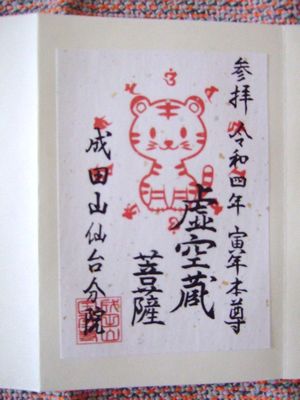 参拝 令和四年 寅年本尊
虚空蔵
菩薩
成田山仙台分院